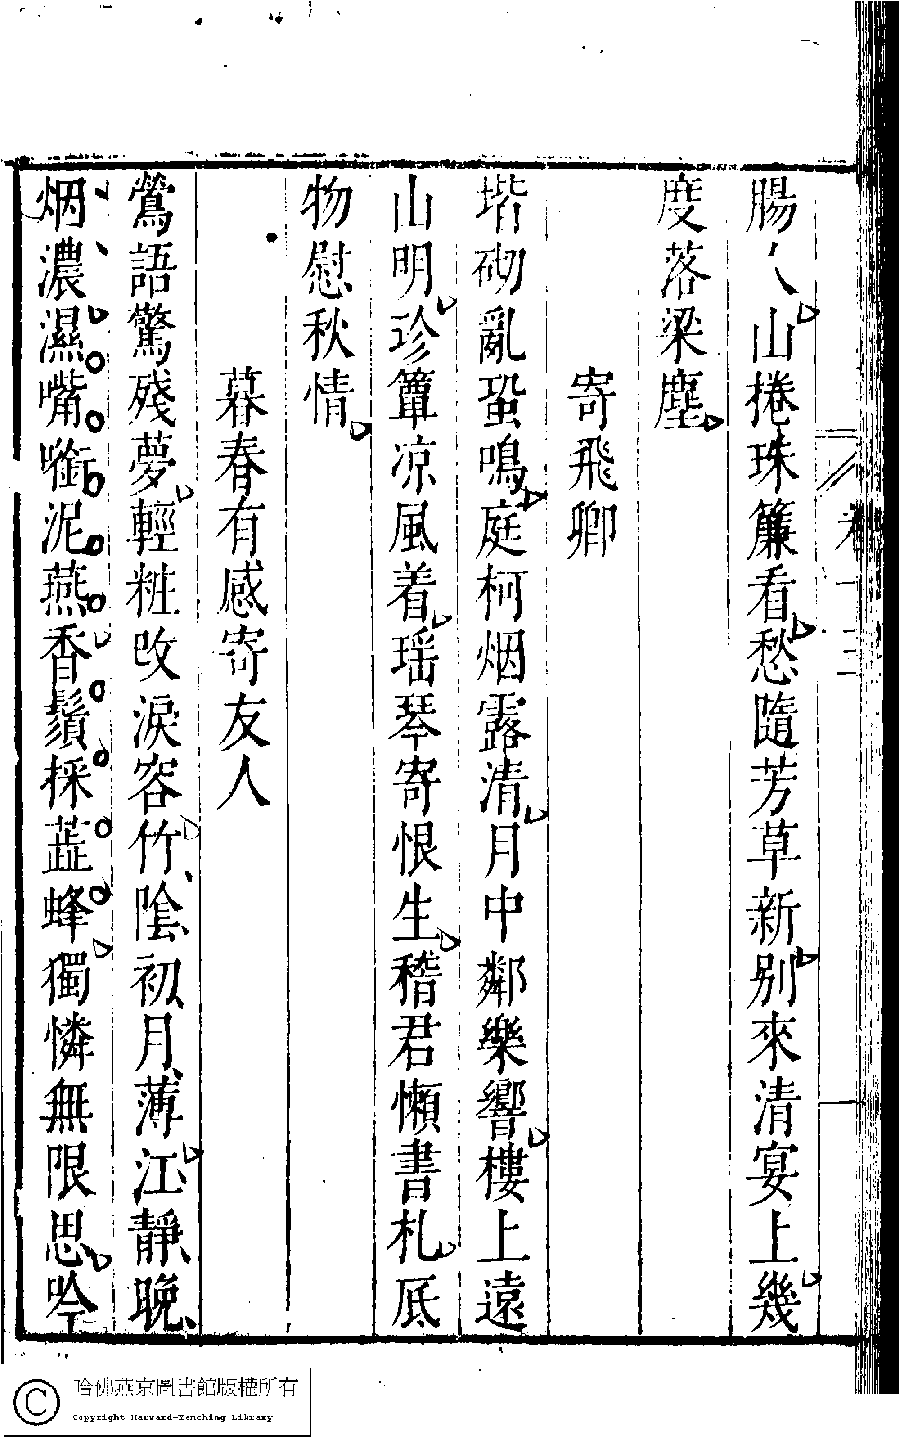 腸人山捲珠簾看愁隨芳草新別來清宴上幾
度落梁塵
寄飛卿
堦砌亂蛩鳴庭柯烟露清月中鄰樂響樓上遠
山明珍簟凉風着瑶琴寄恨生稽君懶書札底
物慰秋情
暮春有感寄友人
鶯語驚殘夢輕粧改淚容竹陰初月薄江靜晚
烟濃濕嘴啣泥燕香鬚採蕋蜂獨憐無限思吟
哈佛燕京圖書館版權所有
Copyright Harvard-Yenching Library